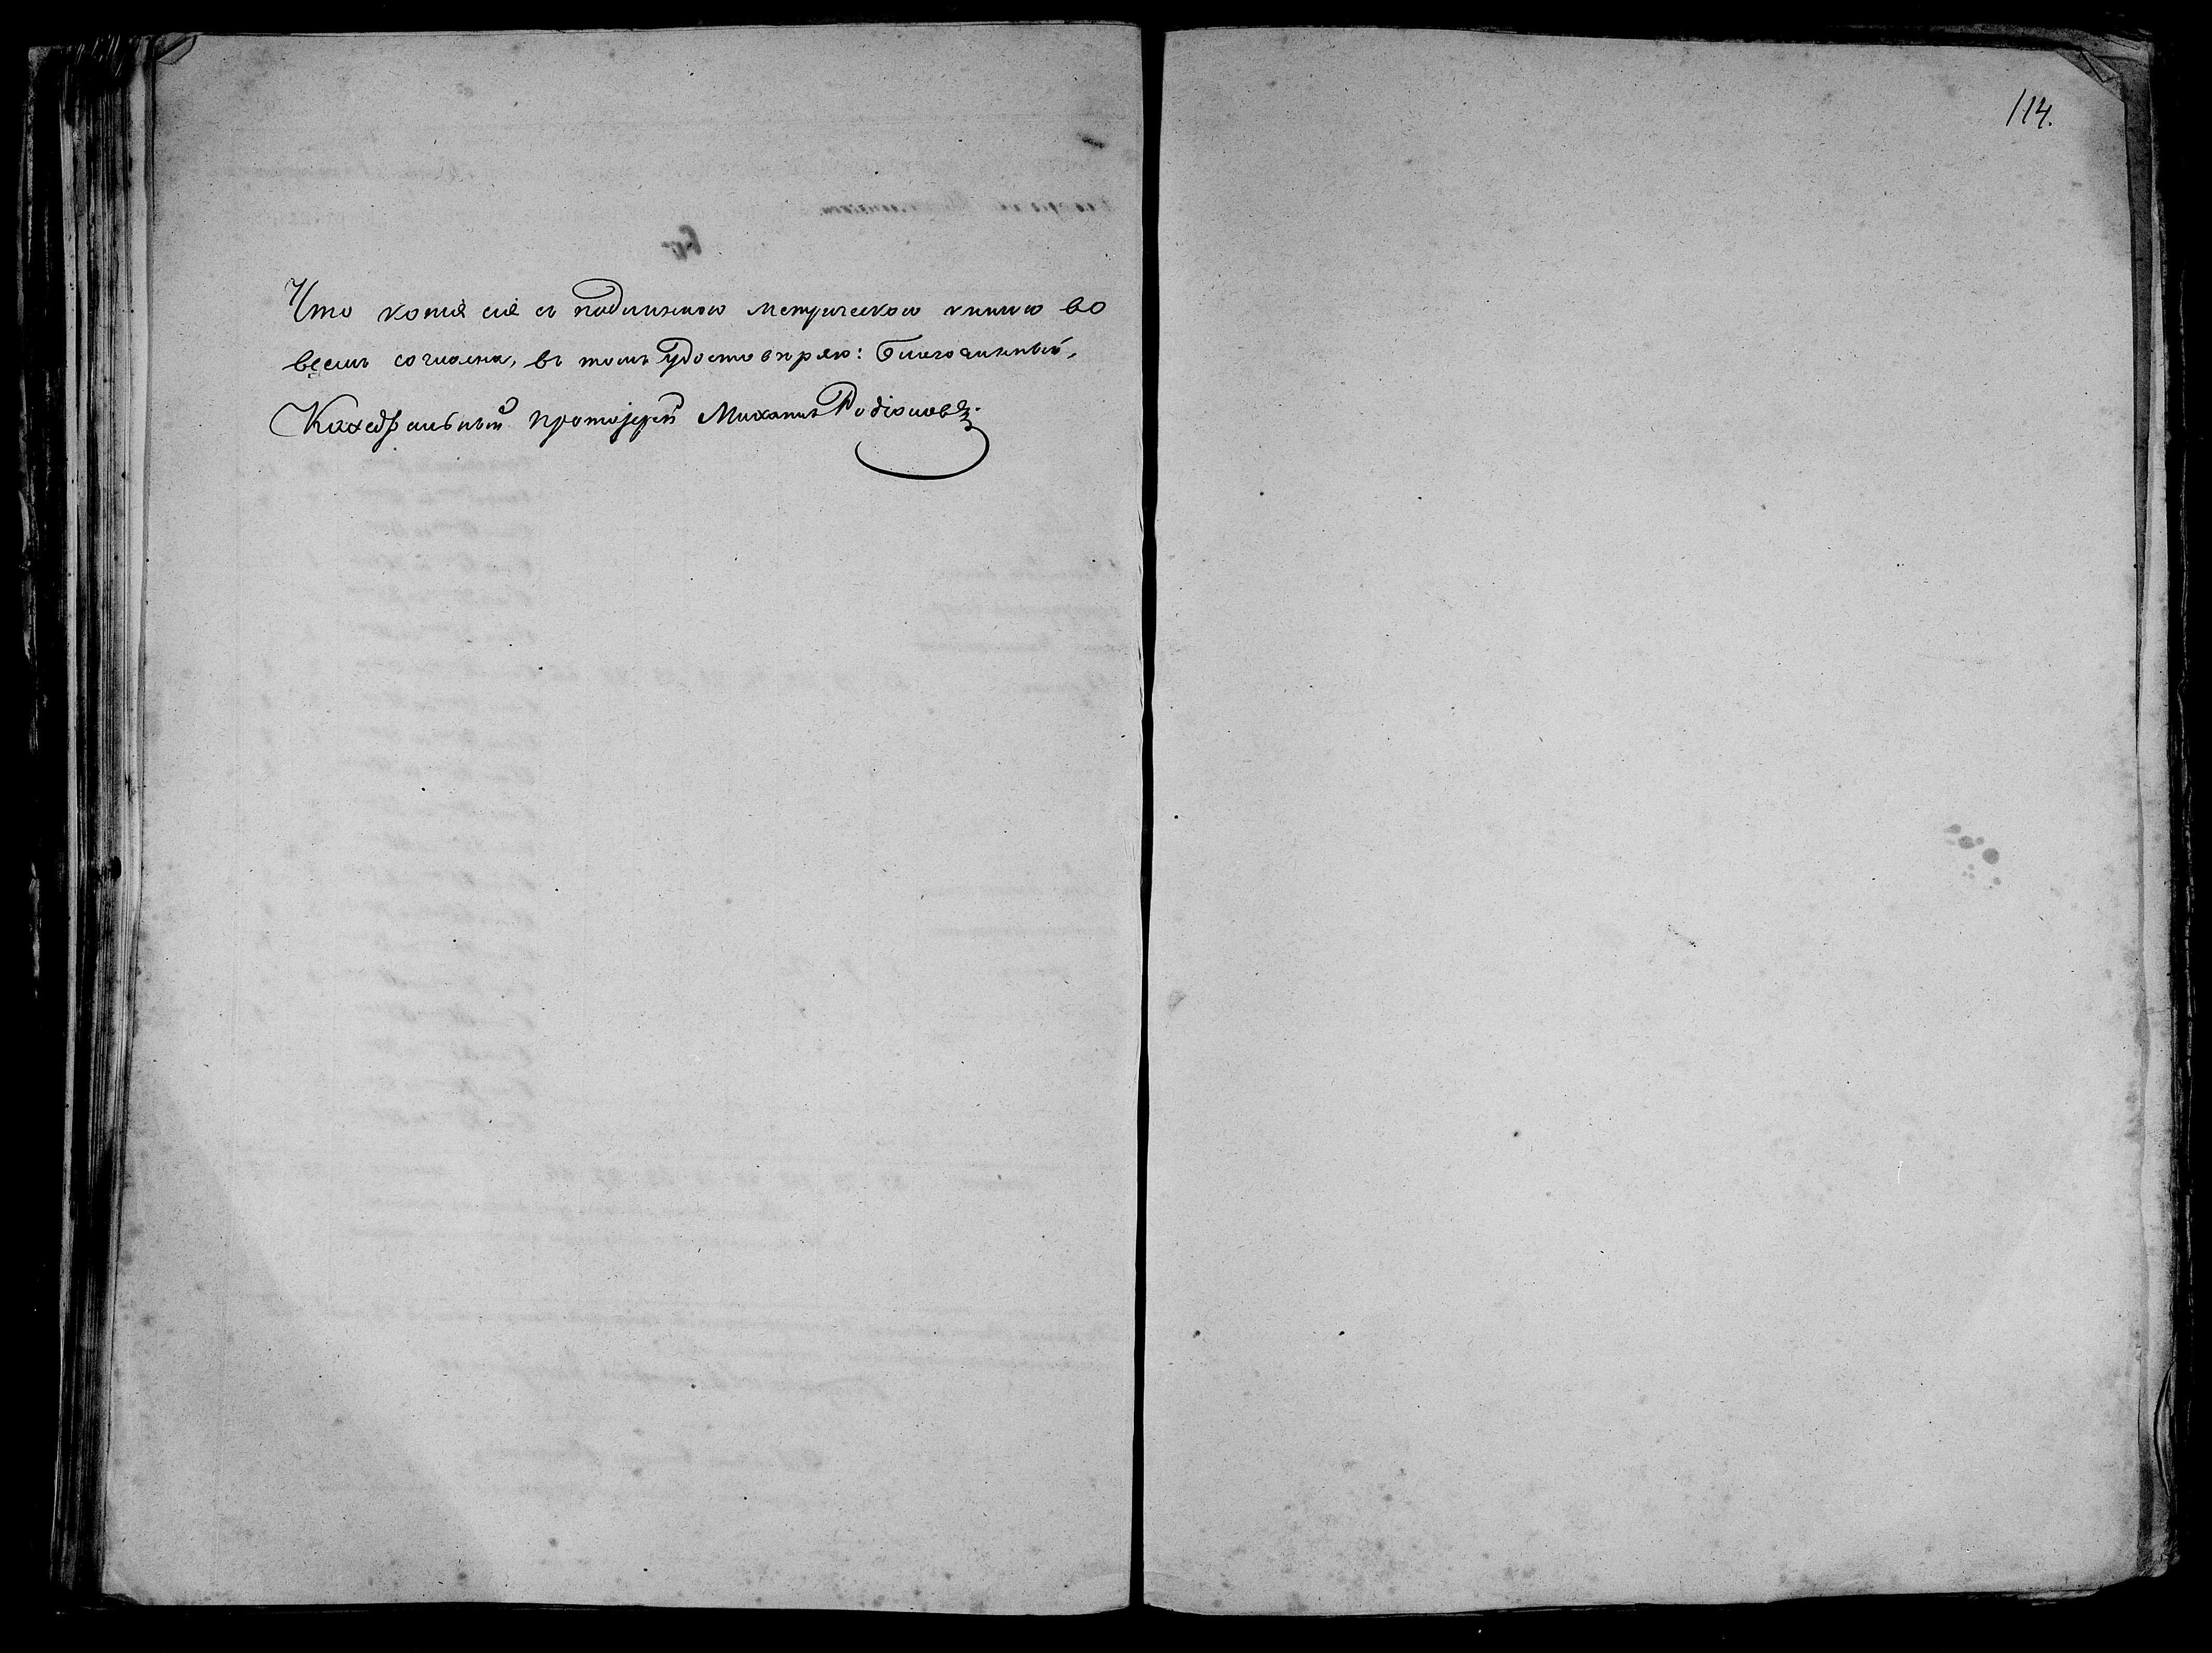 114.
Что копія сія съ подлинною метрическою книгою во
всемъ согласна, въ томъ удостовѣряю: благочинный,
Каѳедральный протоіерей Михаилъ Родіоновъ.